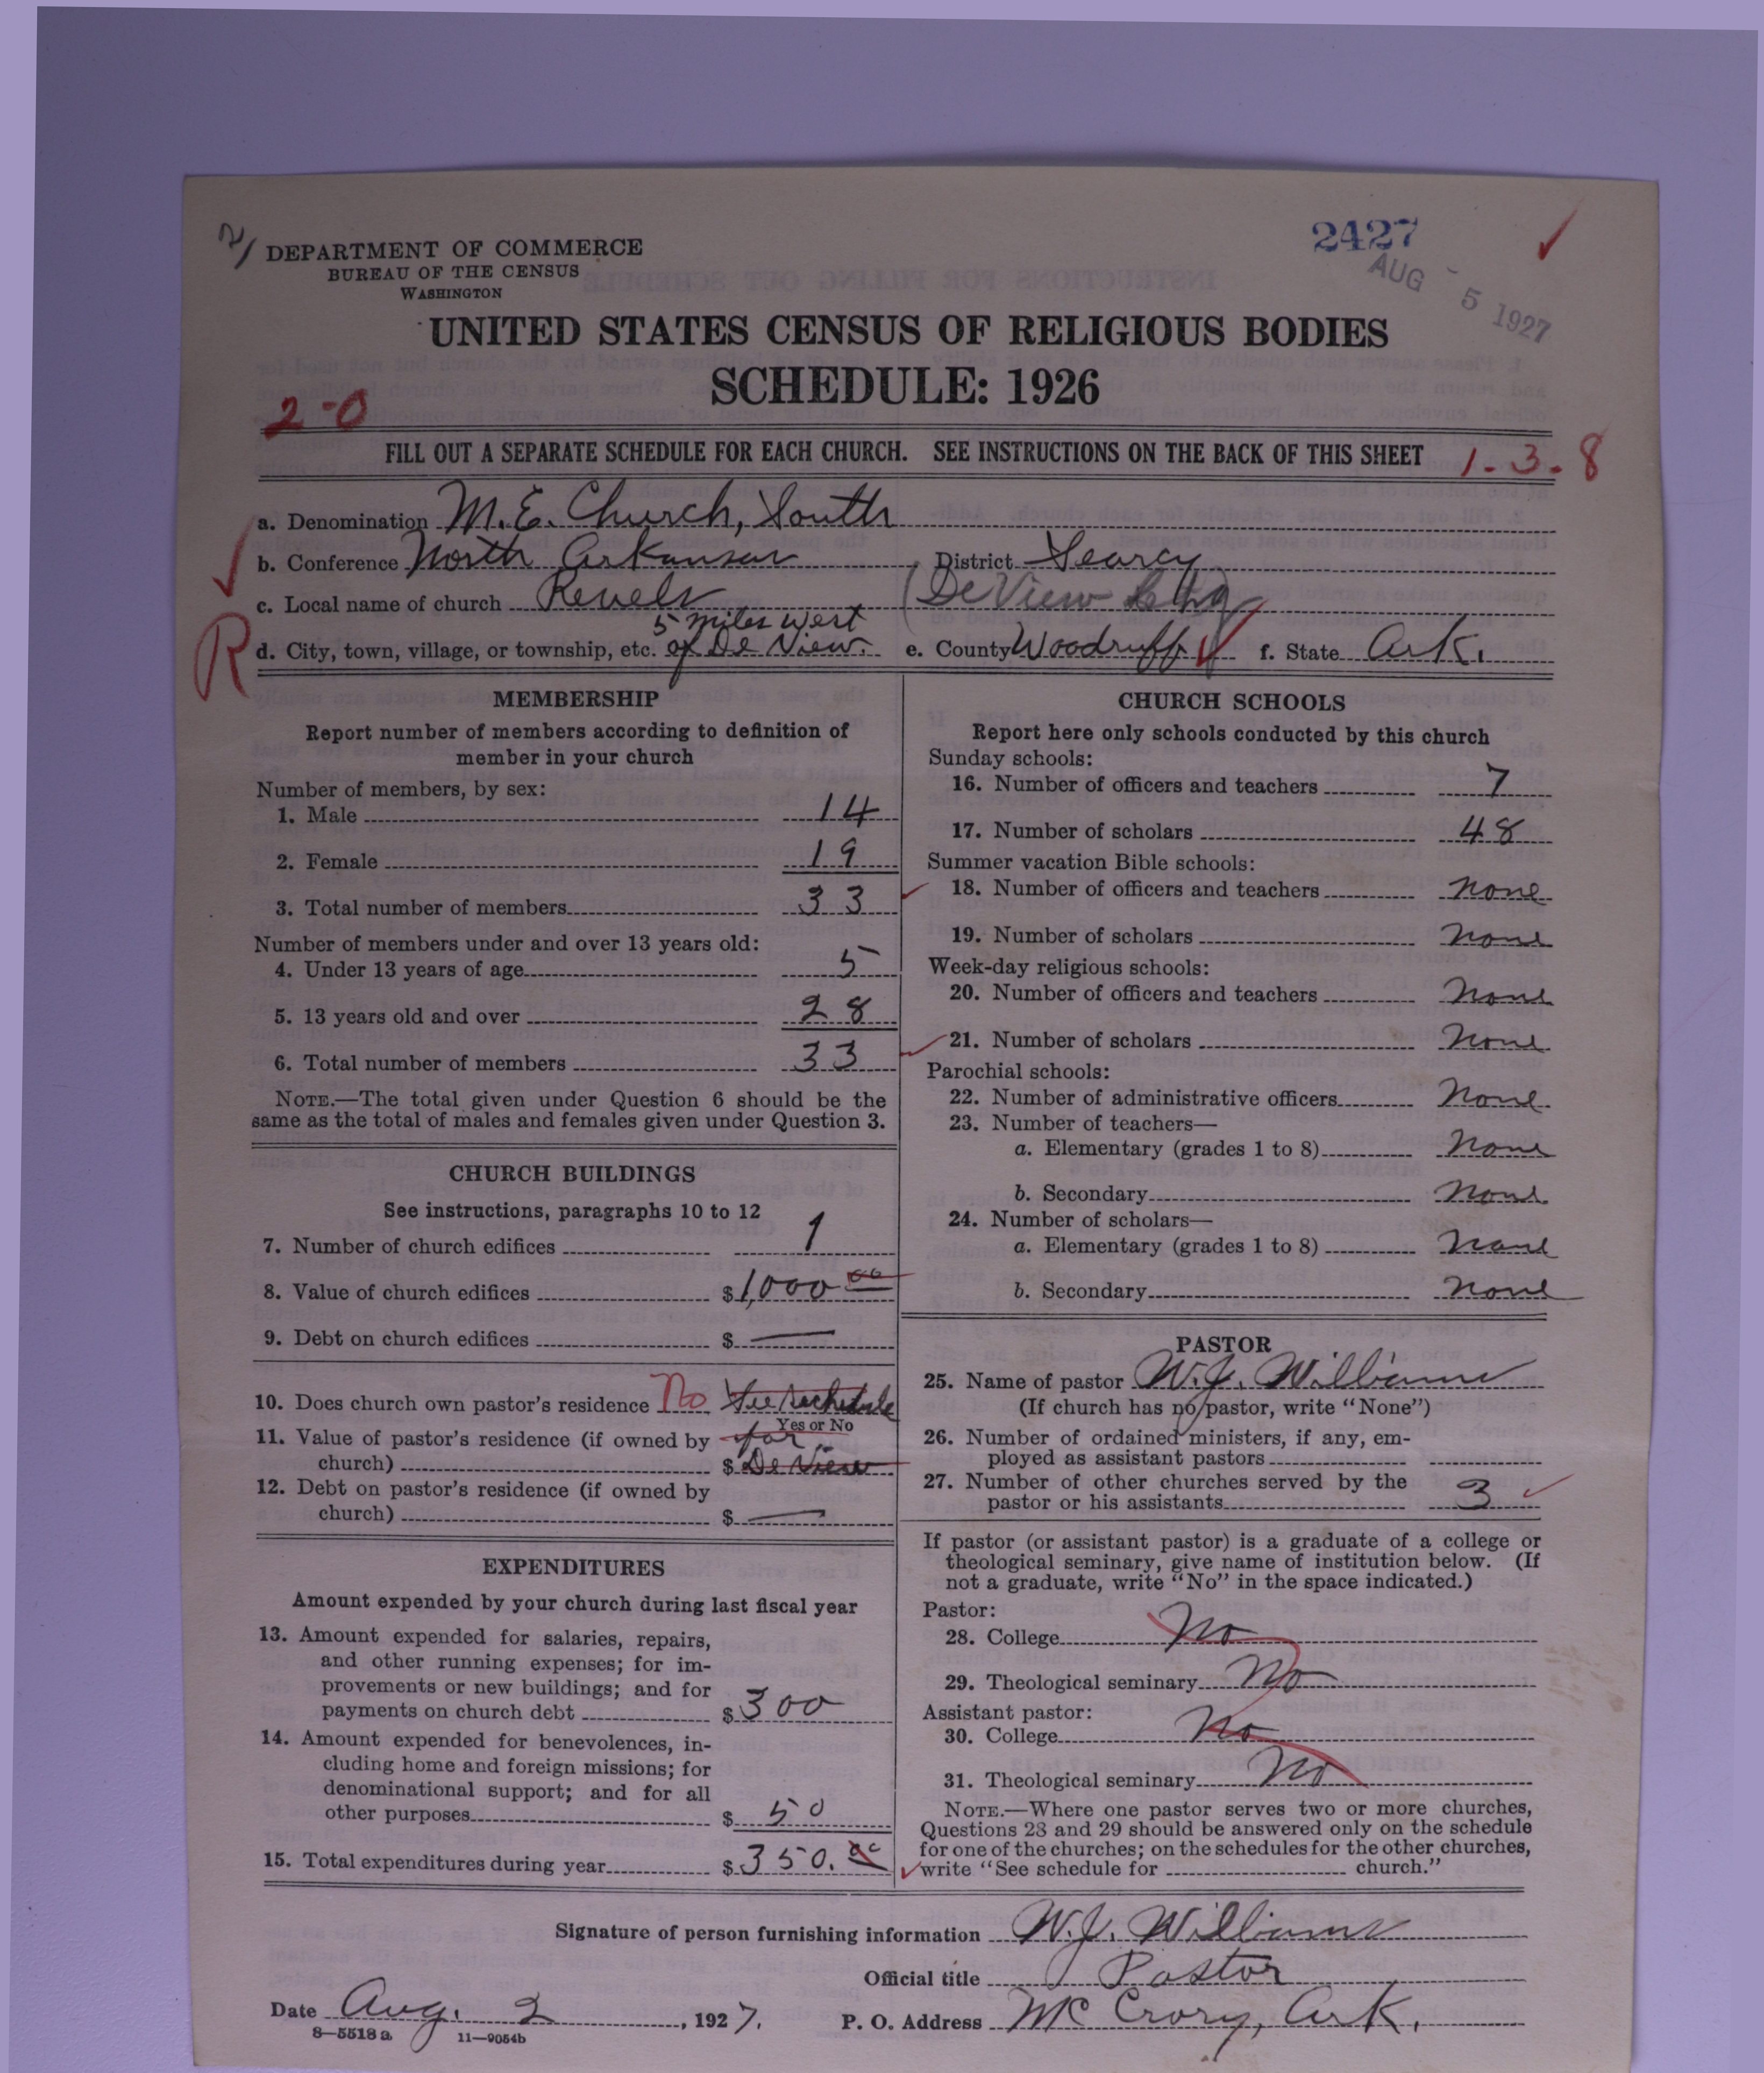 2427
AUG 5 1927
DEPARTMENT OF COMMERCE
BUREAU OF THE CENSUS
WASHINGTON
UNITED STATES CENSUS OF RELIGIOUS BODIES
SCHEDULE: 1926
2-0
FILL OUT A SEPARATE SCHEDULE FOR EACH CHURCH. SEE INSTRUCTIONS ON THE BACK OF THIS SHEET 1-3-8
a. Denomination M.E. Church, South
b. Conference North Arkansas District Searcy
c. Local name of church Revels (De View Chg)
R
d. City, town, village, or township, etc. 5 miles west of De View. e. County Woodruff f. State Ark.
MEMBERSHIP
Report number of members according to definition of
member in your church
Number of members, by sex:
1. Male 14
2. Female 19
3. Total number of members 33
Number of members under and over 13 years old:
4. Under 13 years of age 5
5. 13 years old and over 28
6. Total number of members 33
NOTE.—The total given under Question 6 should be the
same as the total of males and females given under Question 3.
CHURCH BUILDINGS
See instructions, paragraphs 10 to 12
7. Number of church edifices 1
8. Value of church edifices $1,000 00
9. Debt on church edifices $ —
10. Does church own pastor's residence No See schedule
Yes or No
11. Value of pastor's residence (if owned by for
church) $ De View
12. Debt on pastor's residence (if owned by
church) $ —
EXPENDITURES
Amount expended by your church during last fiscal year
13. Amount expended for salaries, repairs,
and other running expenses; for im-
provements or new buildings; and for
payments on church debt $ 300
14. Amount expended for benevolences, in-
cluding home and foreign missions; for
denominational support; and for all
other purposes $ 50
15. Total expenditures during year $ 350.00
CHURCH SCHOOLS
Report here only schools conducted by this church
Sunday schools:
16. Number of officers and teachers 7
17. Number of scholars 48
Summer vacation Bible schools:
18. Number of officers and teachers none
19. Number of scholars none
Week-day religious schools:
20. Number of officers and teachers None
21. Number of scholars None
Parochial schools:
22. Number of administrative officers None
23. Number of teachers—
a. Elementary (grades 1 to 8) None
b. Secondary None
24. Number of scholars—
a. Elementary (grades 1 to 8) None
b. Secondary None
PASTOR
25. Name of pastor W.J. Williams
(If church has no pastor, write "None")
26. Number of ordained ministers, if any, em-
ployed as assistant pastors
27. Number of other churches served by the
pastor or his assistants 3
If pastor (or assistant pastor) is a graduate of a college or
theological seminary, give name of institution below. (If
not a graduate, write "No" in the space indicated.)
Pastor:
28. College No
29. Theological seminary No
Assistant pastor:
30. College No
31. Theological seminary No
NOTE.—Where one pastor serves two or more churches,
Questions 28 and 29 should be answered only on the schedule
for one of the churches; on the schedules for the other churches,
write "See schedule for church."
Signature of person furnishing information W.J. Williams
Official title Pastor
Date Aug. 2, 1927. P. O. Address McCrory, Ark.
8—5518 a 11—9054b